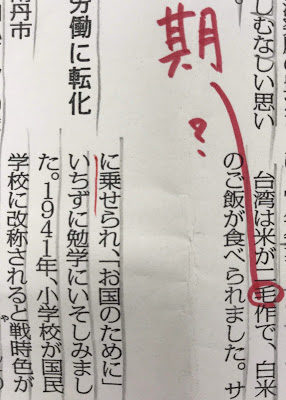 しむなしい思い
期?
台湾は米が二毛作で、白米
のご飯が食べられました。サ
労働に転化
丹市
に乗せられ、「お国のために」
いちずに勉学にいそしみまし
た。1941年、小学校が国民
学校に改称されると戦時色が